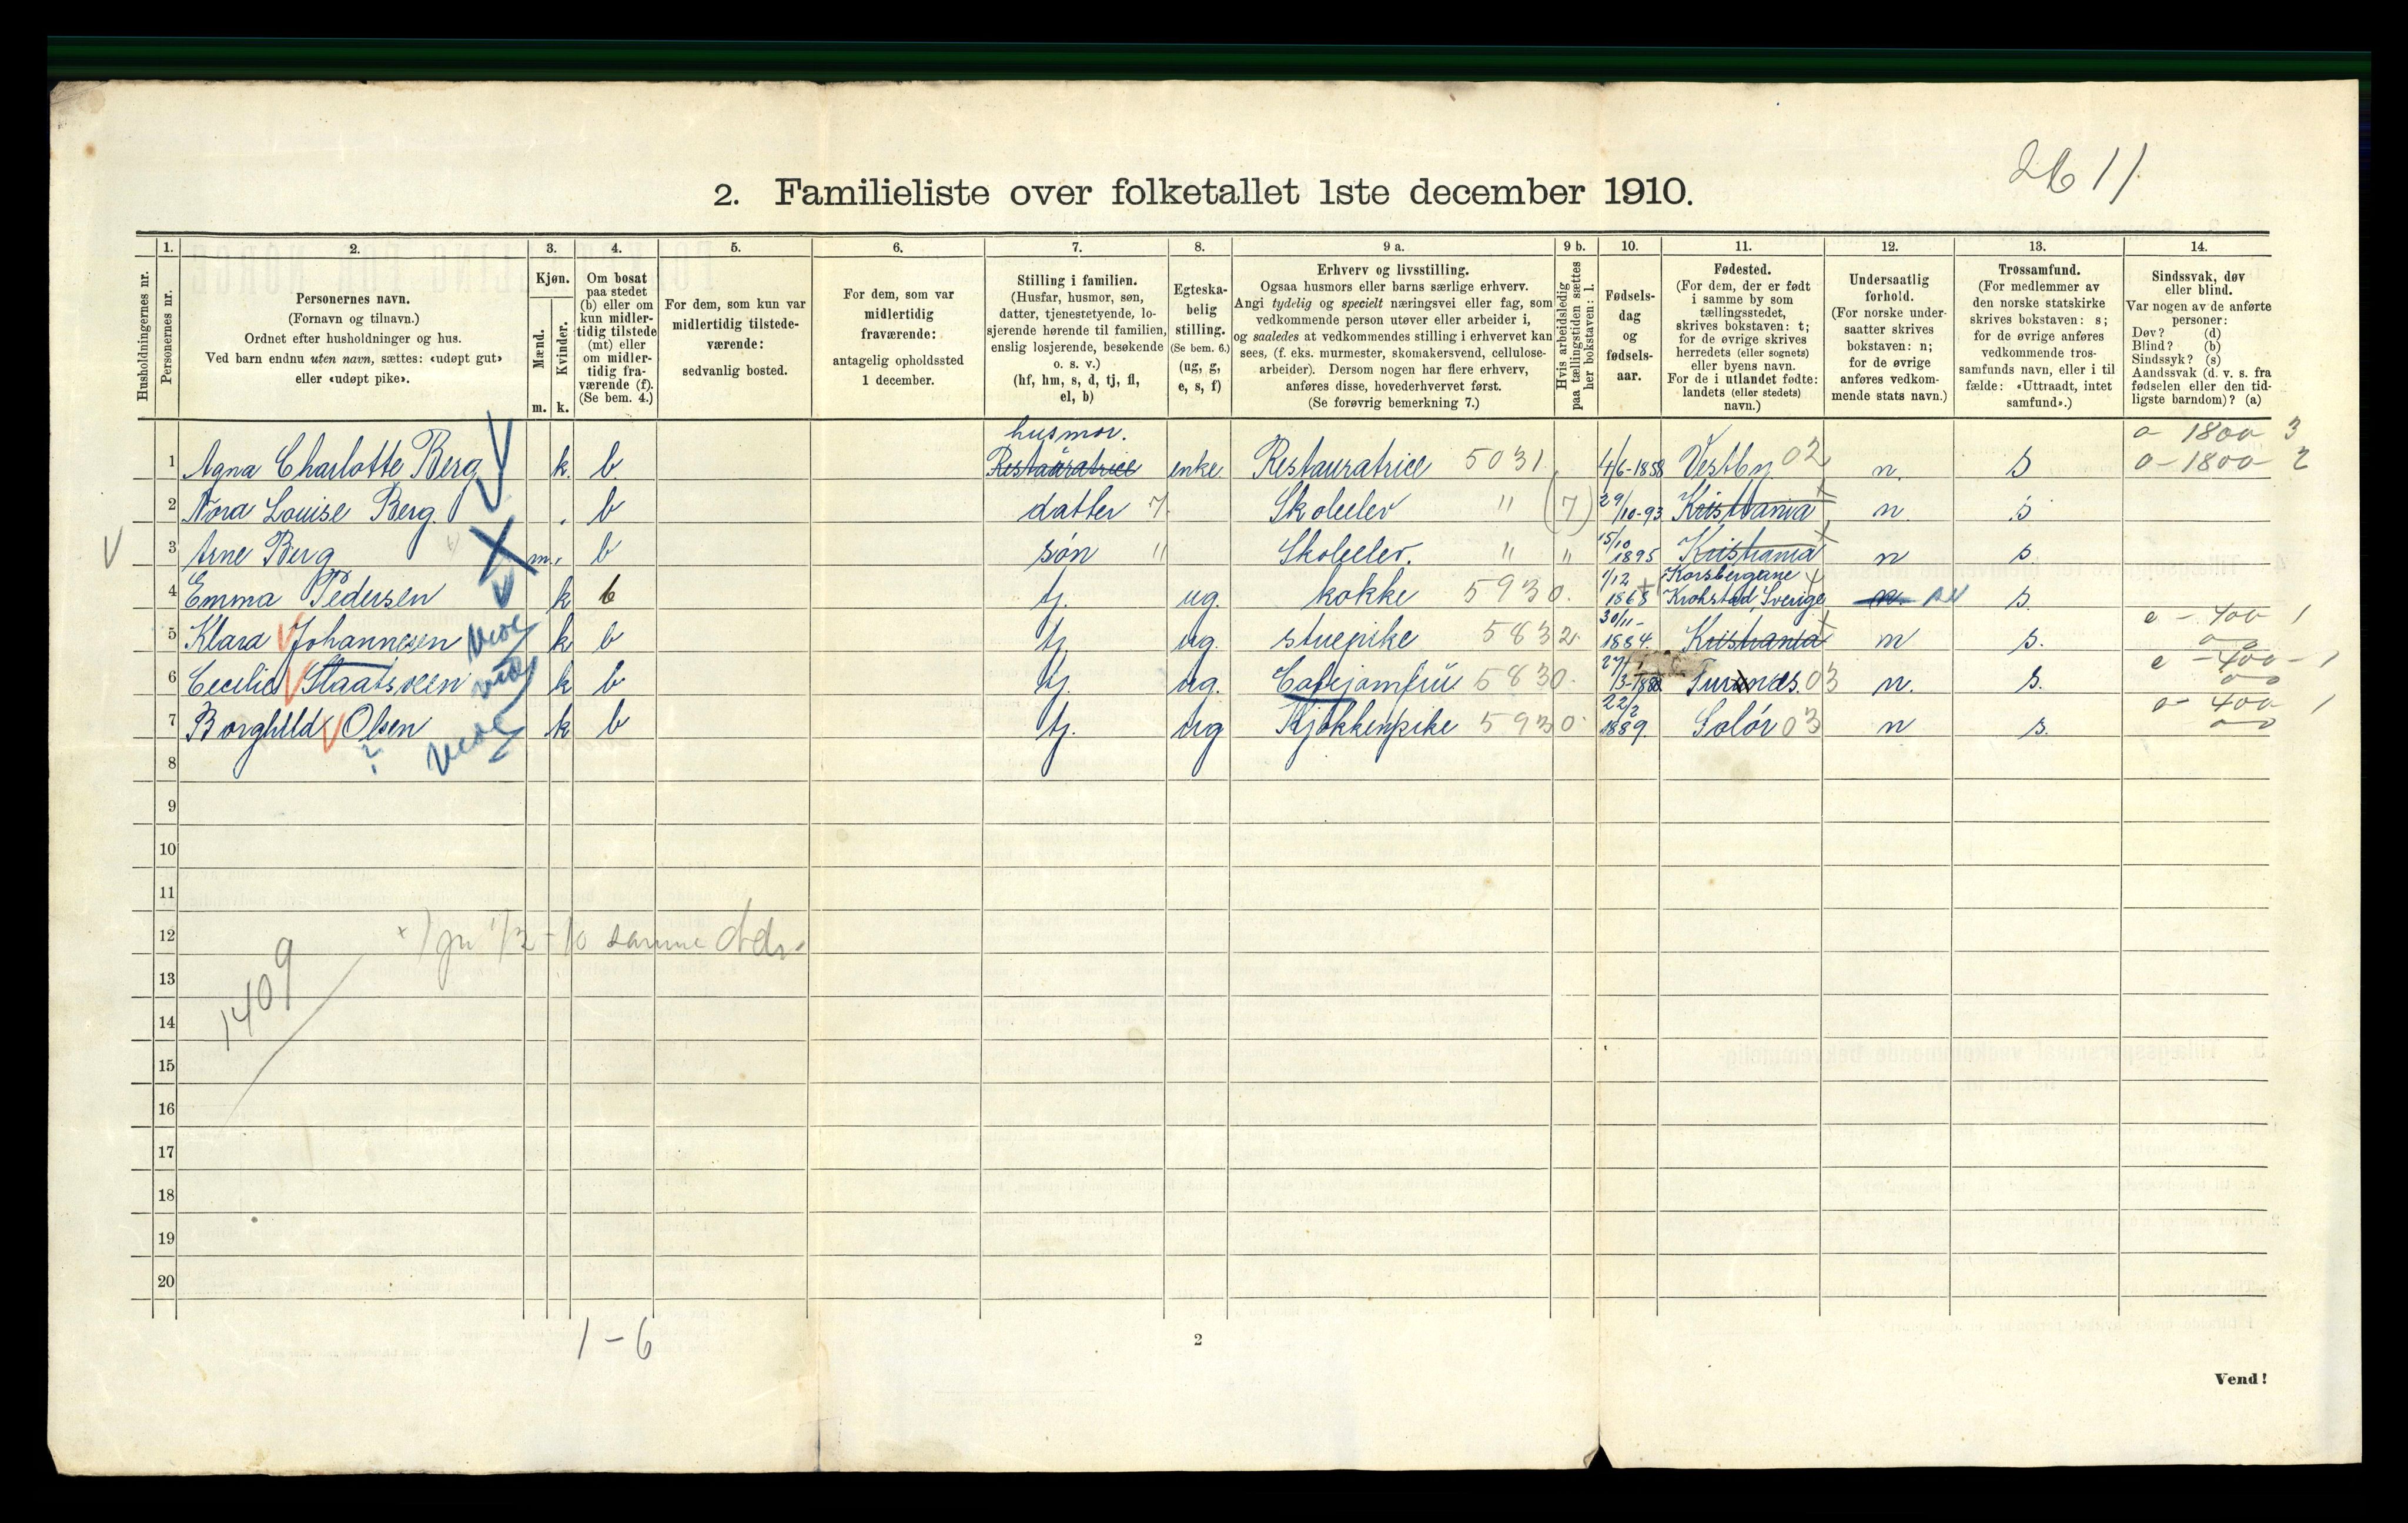 2611
2. Familieliste over folketallet 1ste december 1910.
1. 2. 3. 4. 5. 6. 7. 8. 9 a. 9 b. 10. 11. 12. 13. 14.
Husholdningernes nr.
Personernes nr.
Personernes navn.
(Fornavn og tilnavn.)
Ordnet efter husholdninger og hus.
Ved barn endnu uten navn, sættes: «udøpt gut»
eller «udøpt pike».
Kjøn.
Mænd.
m.
Kvinder.
k.
Om bosat
paa stedet
(b) eller om
kun midler-
tidig tilstede
(mt) eller
om midler-
tidig fra-
værende (f).
(Se bem. 4.)
For dem, som kun var
midlertidig tilstede-
værende:
sedvanlig bosted.
For dem, som var
midlertidig
fraværende:
antagelig opholdssted
1 december.
Stilling i familien.
(Husfar, husmor, søn,
datter, tjenestetyende, lo-
sjerende hørende til familien,
enslig losjerende, besøkende
o. s. v.)
(hf, hm, s, d, tj, fl,
el, b)
Egteska-
belig
stilling.
(Se bem. 6.)
(ug, g,
e, s, f)
Erhverv og livsstilling.
Ogsaa husmors eller barns særlige erhverv.
Angi tydelig og specielt næringsvei eller fag, som
vedkommende person utøver eller arbeider i,
og saaledes at vedkommendes stilling i erhvervet kan
sees, (f. eks. murmester, skomakersvend, cellulose-
arbeider). Dersom nogen har flere erhverv,
anføres disse, hovederhvervet først.
(Se forøvrig bemerkning 7.)
Hvis arbeidsledig
paa tællingstiden sættes
her bokstaven: l.
Fødsels-
dag
og
fødsels-
aar.
Fødested.
(For dem, der er født
i samme by som
tællingsstedet,
skrives bokstaven: t;
for de øvrige skrives
herredets (eller sognets)
eller byens navn.
For de i utlandet fødte:
landets (eller stedets)
navn.)
Undersaatlig
forhold.
(For norske under-
saatter skrives
bokstaven: n;
for de øvrige
anføres vedkom-
mende stats navn.)
Trossamfund.
(For medlemmer av
den norske statskirke
skrives bokstaven: s;
for de øvrige anføres
vedkommende tros-
samfunds navn, eller i til
fælde: «Uttraadt, intet
samfund».)
Sindssvak, døv
eller blind.
Var nogen av de anførte
personer:
Døv? (d)
Blind? (b)
Sindssyk? (s)
Aandssvak (d. v. s. fra
fødselen eller den tid-
ligste barndom)? (a)
husmor. 1800 3
1 Agna Charlotte Berg k. b. Restauratrice enke. Restauratrice 5031 4/6-1858 Vestby 02 n. s 0-1800- 2
2 Nora Louise Berg. b datter 7. Skoleelev " (7) 29/10-93 Kristiania n. s
3 Arne Berg m. b søn " Skoleelev. " " 15/10 1895 Kristiania n s.
4 Emma Pedersen k b tj. ug. kokke 5930. 1/12 1865 Krokstad Sverige n. s.
5 Klara Johannesen k b tj ug. stuepike 5832. 30/11- 1884. Kristiania n s. 400 1
6 Cecilie Staatsveen k b tj. ug. 5830. 03 n. s. 400 - 1
7 Borghild Olsen k b tj. ug Kjøkkenpike 5930. 22/2 1889. Solør 03 n s. 400 1
?
8
9
10
11
12 samme
13
1409
14
15
16
17
18
19
20
1-6
2
Vend!